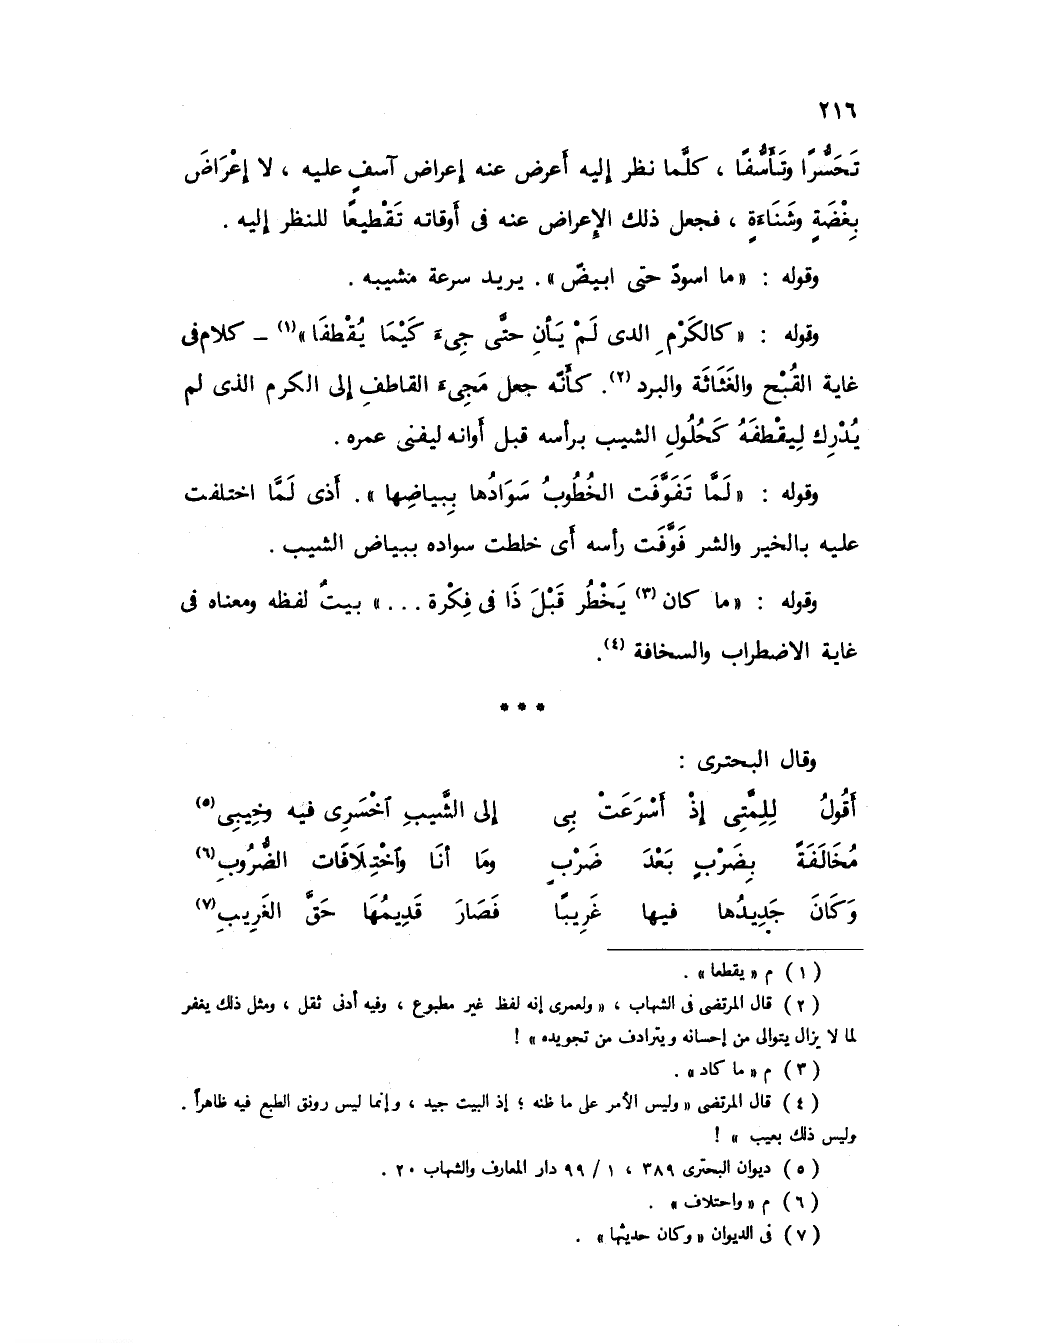 ٢١٦
تَحَسُّرًا وتَأَسُّفًا ، كلَّما نظر إليه أعرض عنه إعراض آسفٍ عليه ، لا إعْرَاضَ
بِغْضَةٍ وشَنَاءَةٍ ، فجعل ذلك الإعراض عنه فى أوقاته تَقْطيعًا للنظر إليه .
وقوله : « ما اسودّ حتى ابيضّ » . يريد سرعة مشيبه .
وقوله : « كالكَرْمِ الدى لَمْ يَأنِ حتَّى جِىءَ كَيْمَا يُقْطفَا »(١) ــ كلام فى
غاية القُبْح والغَثَاثَة والبرد (٢). كأنّه جعل مَجىءَ القاطفِ إلى الكرم الذى لم
يُدْرِك لِيقْطفَهُ كَحُلُولِ الشيب برأسه قبل أوانه ليفنى عمره .
وقوله : « لَمَّا تَفَوَّفَت الخُطُوبُ سَوَادُها بِبياضِها » . أذى لَمَّا اختلفت
عليه بالخير والشر فَوَّفَت رأسه أى خلطت سواده ببياض الشيب .
وقوله : « ما كان (٣) يَخْطُر قَبْلَ ذَا فى فِكْرة ... » بيتٌ لفظه ومعناه فى
غاية الاضطراب والسخافة (٤).
* * *
وقال البحترى :
أَقُولُ لِلِمَّتِى إذْ أَسْرَعَتْ بِى إلى الشَّيبِ ٱخْسَرِى فيه وخِيبِى(٥)
مُخَالَفَةً بِضَرْبٍ بَعْدَ ضَرْبٍ ومَا أنَا وٱخْتِلَافَات الضُّرُوبِ(٦)
وَكَانَ جَدِيدُها فيها غَرِيبًا فَصَارَ قَدِيمُهَا حَقَّ الغَرِيبِ(٧)
( ١ ) م « يقطعا » .
( ٢ ) قال المرتضى فى الشهاب ، « ولعمرى إنه لفظ غير مطبوع ، وفيه أدنى ثقل ، ومثل ذلك يغفر
لما لا يزال يتوالى من إحسانه ويترادف من تجويده » !
( ٣ ) م « ما كاد » .
( ٤ ) قال المرتضى « وليس الأمر على ما ظنه ؛ إذ البيت جيد ، وإنما ليس رونق الطبع فيه ظاهراً .
وليس ذلك بعيب » !
( ٥ ) ديوان البحترى ٣٨٩ ، ١ / ٩٩ دار المعارف والشهاب ٢٠ .
( ٦ ) م « واحتلاف » .
( ٧ ) فى الديوان « وكان حديثها » .